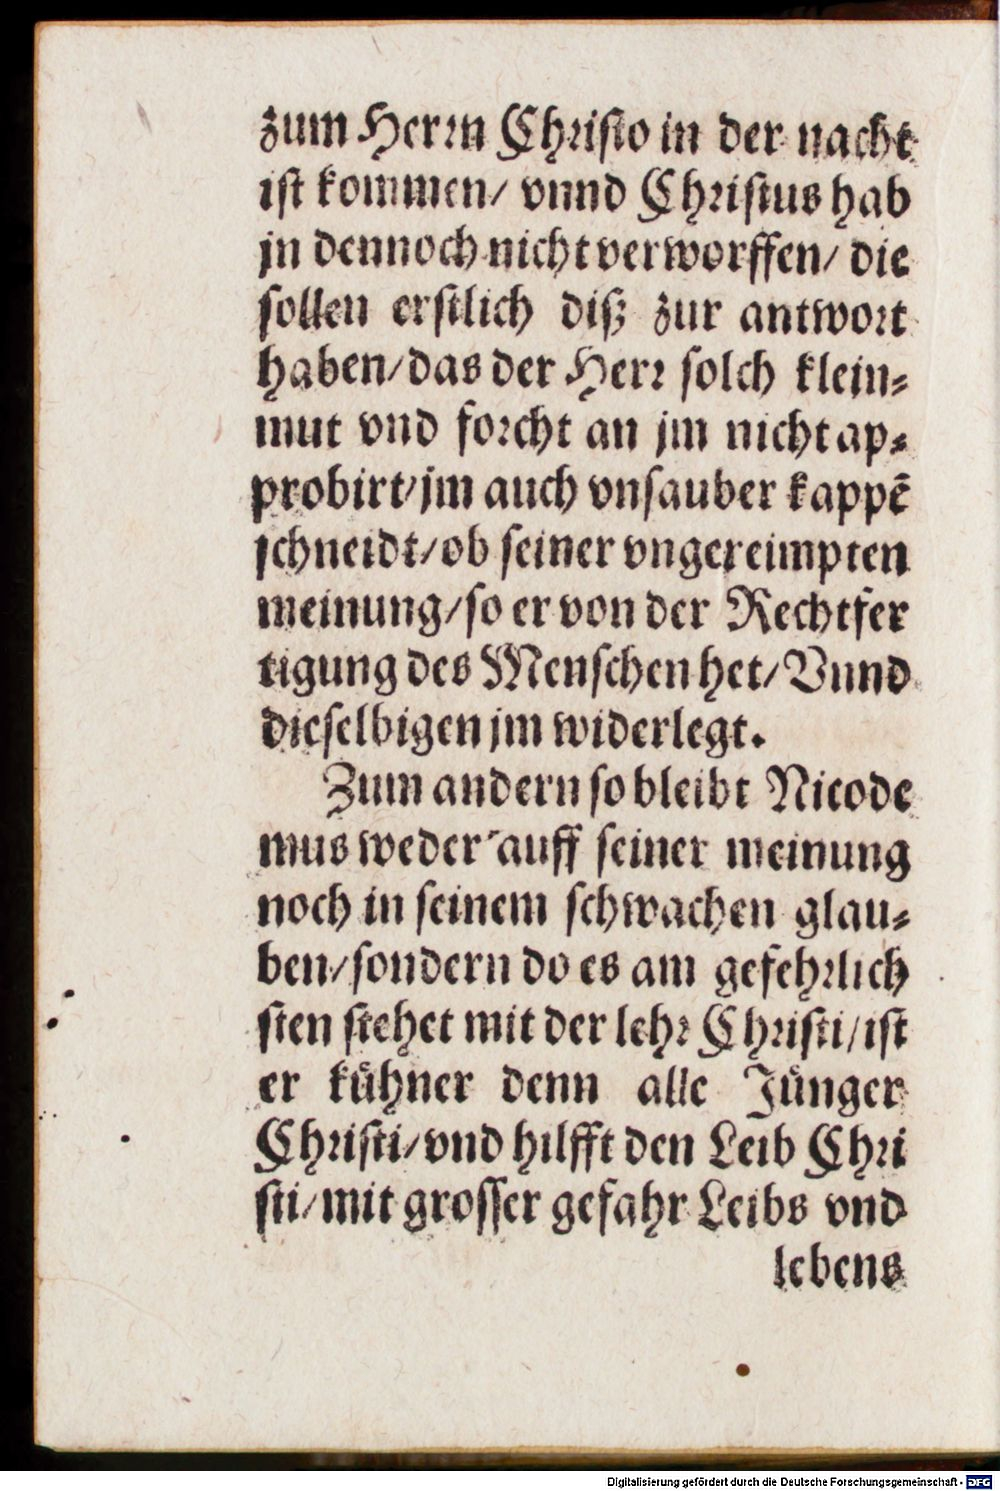 zum Herrn Christo in der nacht
ist kommen/ vnnd Christus hab
jn dennoch nicht verworffen/ die
sollen erstlich diß zur antwort
haben/das der Herr solch klein⸗
mut vnd forcht an jm nicht ap⸗
probirt/jm auch vnsauber kappẽ
schneidt/ob seiner vngereimpten
meinung/so er von der Rechtfer
tigung des Menschen het/Vnnd
dieselbigen jm widerlegt.
Zum andern so bleibt Nicode
mus weder auff seiner meinung
noch in seinem schwachen glau⸗
ben/sondern do es am gefehrlich
sten stehet mit der lehr Christi/ist
er kuͤhner denn alle Juͤnger
Christi/vnd hilfft den Leib Chri
sti/mit grosser gefahr Leibs vnd
lebens
Digitalisierung gefördert durch die Deutsche Forschungsgemeinschaft - DFG